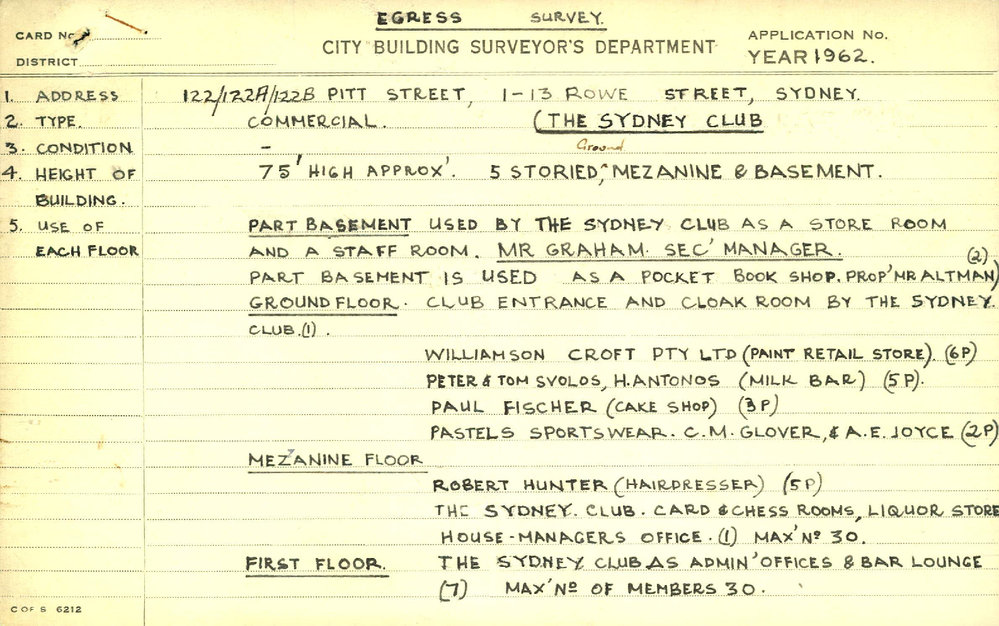 EGRESS SURVEY.
CARD No.
CITY BUILDING SURVEYOR'S DEPARTMENT
APPLICATION No.
DISTRICT
YEAR 1962.
1. ADDRESS 122/122A/122B PITT STREET, 1-13 ROWE STREET, SYDNEY.
2. TYPE. COMMERCIAL. (THE SYDNEY CLUB
3. CONDITION – Ground
4. HEIGHT OF 75' HIGH APPROX'. 5 STORIED, MEZANINE & BASEMENT.
BUILDING.
5. USE OF PART BASEMENT USED BY THE SYDNEY CLUB AS A STORE ROOM
EACH FLOOR AND A STAFF ROOM. MR GRAHAM. SEC' MANAGER. (2)
PART BASEMENT IS USED AS A POCKET BOOK SHOP. PROP' MR ALTMAN)
GROUND FLOOR. CLUB ENTRANCE AND CLOAK ROOM BY THE SYDNEY.
CLUB.(1).
WILLIAMSON CROFT PTY LTD (PAINT RETAIL STORE). (6P)
PETER & TOM SVOLOS, H. ANTONOS (MILK BAR) (5P).
PAUL FISCHER (CAKE SHOP) (3P)
PASTELS SPORTSWEAR. C.M. GLOVER, & A.E. JOYCE (2P)
MEZANINE FLOOR
ROBERT HUNTER (HAIRDRESSER) (5P)
THE SYDNEY. CLUB. CARD & CHESS ROOMS, LIQUOR STORE
HOUSE-MANAGERS OFFICE. (1) MAX' Nº 30.
FIRST FLOOR. THE SYDNEY CLUB AS ADMIN' OFFICES & BAR LOUNGE
(7) MAX' Nº OF MEMBERS 30.
C OF S 6212